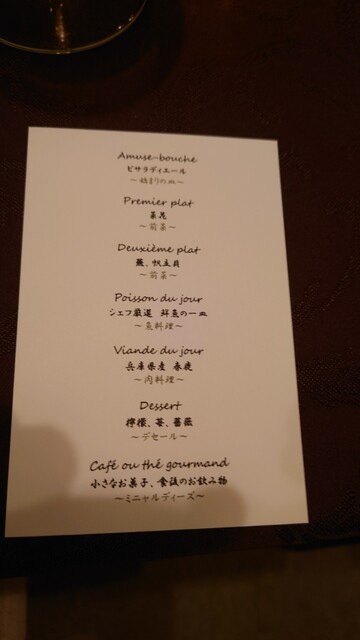 Amuse-bouche
ピサラディエール
～始まりの皿～
Premier plat
菜花
～前菜～
Deuxième plat
蕪、帆立貝
～前菜～
Poisson du jour
シェフ厳選 鮮魚の一皿
～魚料理～
Viande du jour
兵庫県産 春鹿
～肉料理～
Dessert
檸檬、苺、薔薇
～デセール～
Café ou thé gourmand
小さなお菓子、食後のお飲み物
～ミニャルディーズ～